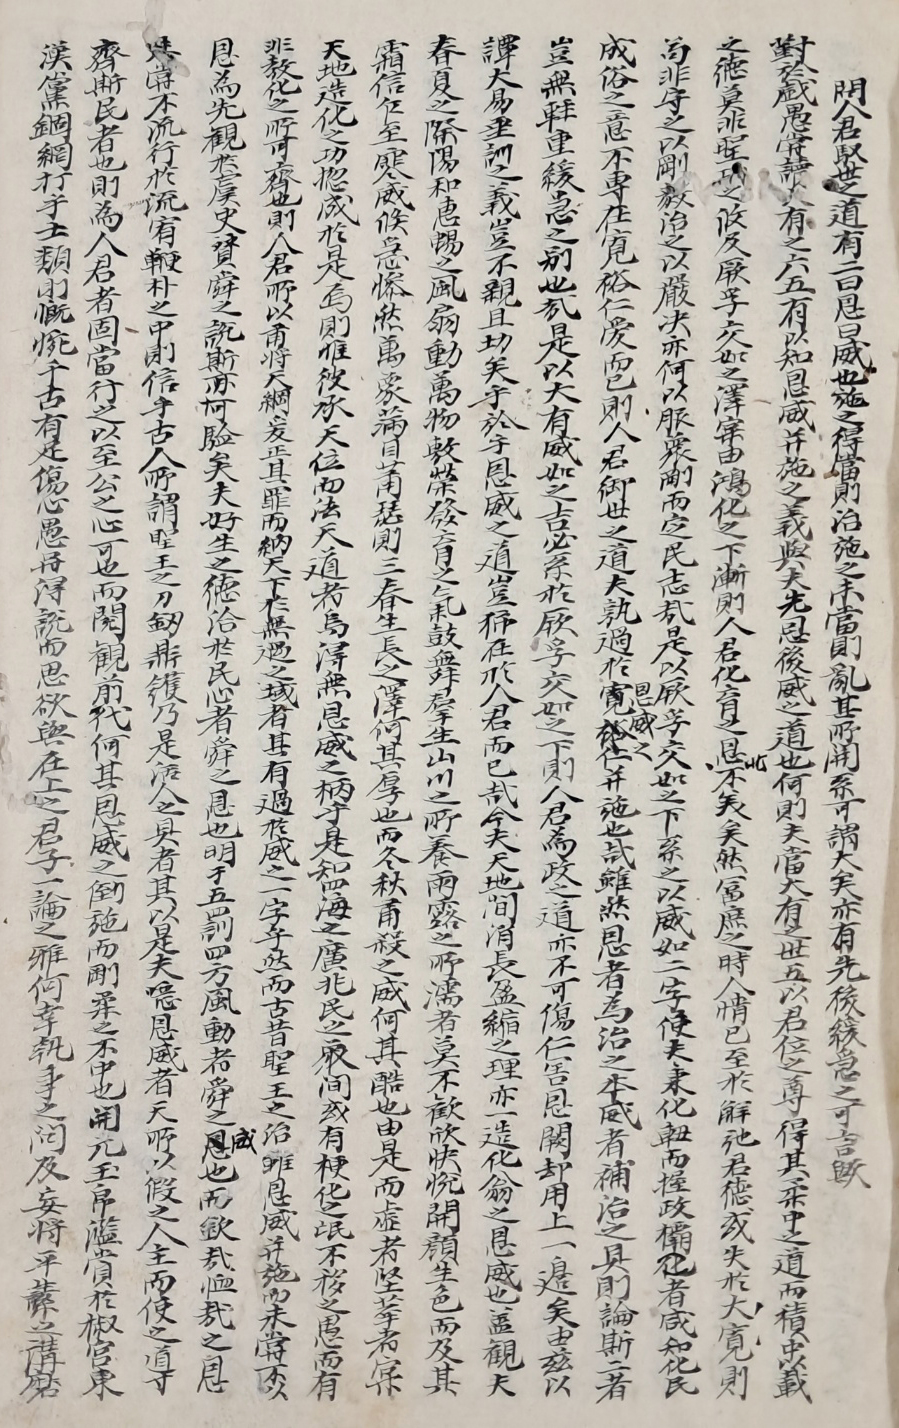 問人君馭世之道有二曰恩曰威也施之得當則治施之未當則亂其所關系可謂大矣亦有先後緩急之可言歟
對於戲愚嘗讀大有之六五有以知恩威并施之義與夫先恩後威之道也何則夫當大有之世五以君位之尊得其柔中之道而積中以載
之德莫非聖哲之攸及厥孚交如之澤寀由鴻化之下漸則人君化育之恩不此矣矣然富庶之時人情已至於解弛君德或失於大寬則
苟非守之以剛教治之以嚴決亦何以服衆剛而定民志哉是以厥孚交如之下系之以威如二字使夫秉化軸而握政欛者咸知化民
成俗之意不專在寬裕仁愛而已則人君御世之道夫孰過於恩威之并施也哉雖然恩者爲治之本威者補治之具則論斯二者
豈無輕重緩急之別也哉是以大有威如之吉必系於厥孚交如之下則人君爲政之道亦不可傷仁害恩闕却用上一邊矣由玆以
譚大易垂訓之義豈不親且切矣乎於乎恩威之道豈獨在於人君而已哉今夫天地間消長盈縮之理亦一造化翁之恩威也盖觀夫
春夏之際陽和惠暢之風扇動萬物敷榮發育之氣鼓舞羣生山川之所養雨露之所濡者莫不歡欣快悅開顔生色而及其
霜信乍至寒威候急慘然萬象滿目蕭瑟則三春生長之澤何其厚也而冬秋肅殺之威何其酷也由是而虛者堅華者寀
天地造化之功揔成於是焉則惟彼承天位而法天道者烏得無恩威之柄乎是知四海之廣兆民之衆間或有梗化之氓不移之愚而有
非敎化之所可齊也則人君所以甫將天綱爰正其罪而納天下於無過之域者其有過於威之一字乎然而古昔聖王之治雖恩威并施而未嘗不以
恩爲先觀於虞史贊舜之說斯亦可驗矣夫好生之德洽於民心者舜之恩也明于五罰四方風動者舜之威也而欽哉恤哉之恩
未嘗不流行於流宥鞭朴之中則信乎古人所謂聖王之刀鋸鼎鑊乃是活人之具者其以是夫噫恩威者天所以假之人主而使之道乎
齊斯民者也則爲人君者固當行之以至公之心可也而閱觀前代何其恩威之倒施而剛柔之不中也開元玉帛濫賞於椒宮東
漢黨錮網打乎士類則慨惋千古有足傷心愚弄得說而思欲與在上之君子一論之雅何幸執事之問及妄將平藜之講磨